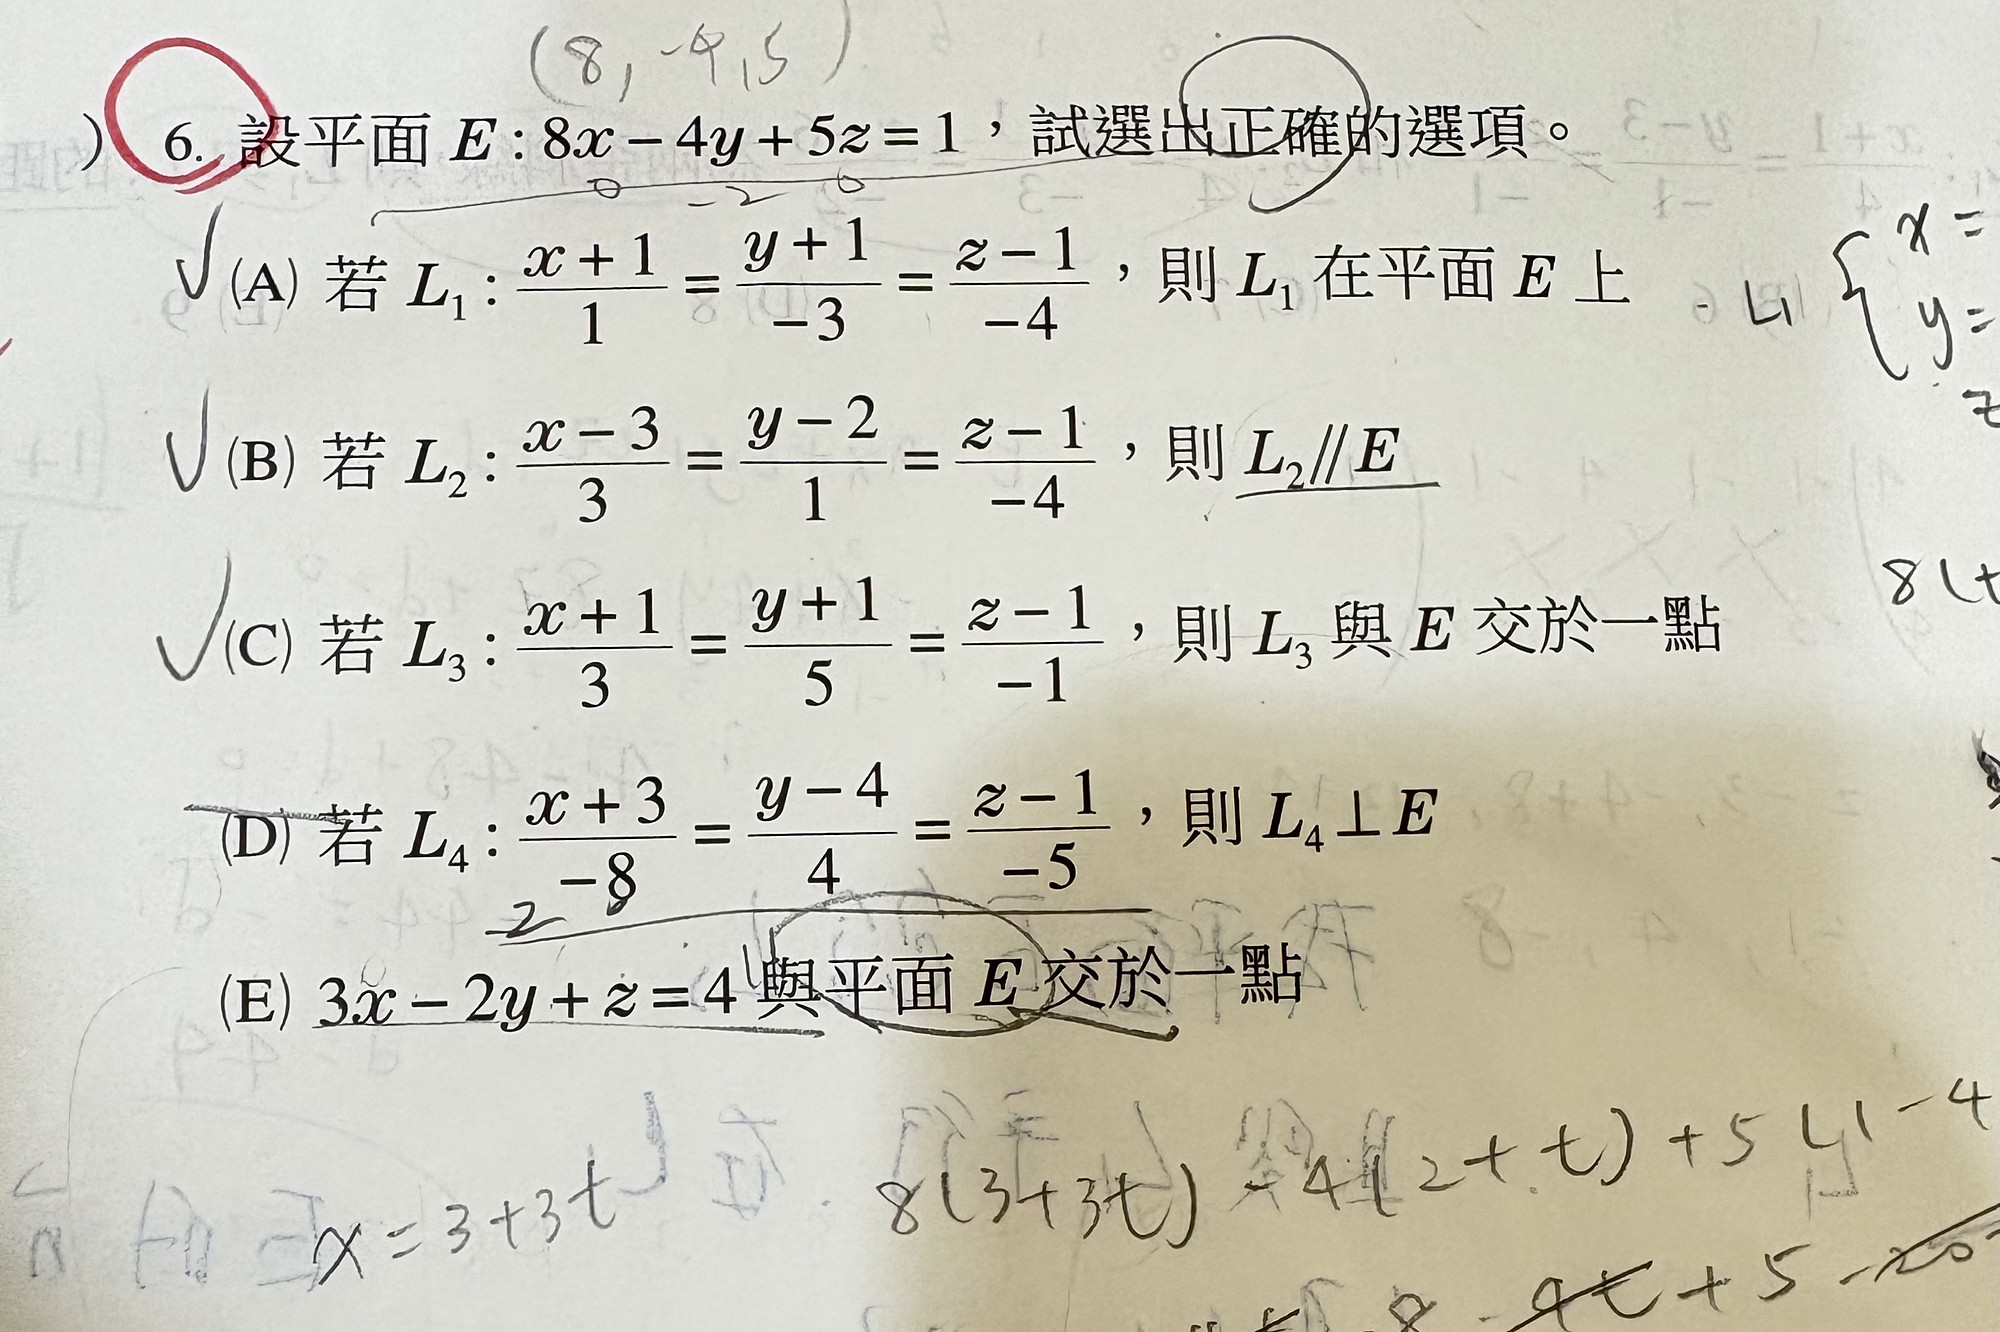 (8, -4, 5)
) 6. 設平面 E : 8x − 4y + 5z = 1，試選出正確的選項。
0 -2 0
(A) 若 L₁ : (x + 1)/1 = (y + 1)/−3 = (z − 1)/−4，則 L₁ 在平面 E 上
L₁ { x =
y =
z
(B) 若 L₂ : (x − 3)/3 = (y − 2)/1 = (z − 1)/−4，則 L₂ // E
8(t
(C) 若 L₃ : (x + 1)/3 = (y + 1)/5 = (z − 1)/−1，則 L₃ 與 E 交於一點
(D) 若 L₄ : (x + 3)/−8 = (y − 4)/4 = (z − 1)/−5，則 L₄ ⊥ E
(E) 3x − 2y + z = 4 與平面 E 交於一點
x = 3+3t
8(3+3t) - 4(2+t) + 5(1-4
8 - 4t + 5 - 20